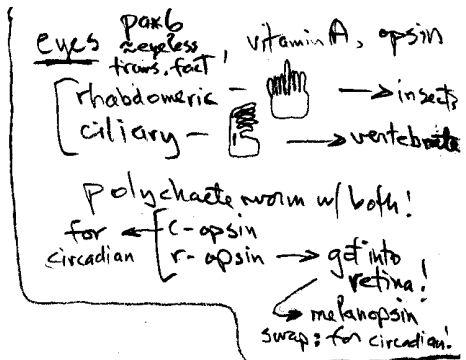 eyes pax6
≈eyeless
trans. fact, vitamin A, opsin
rhabdomeric — → insects
ciliary — → vertebrate
polychaete worm w/ both!
for ← c-opsin
circadian r-opsin → got into
retina!
melanopsin
swap: for circadian!